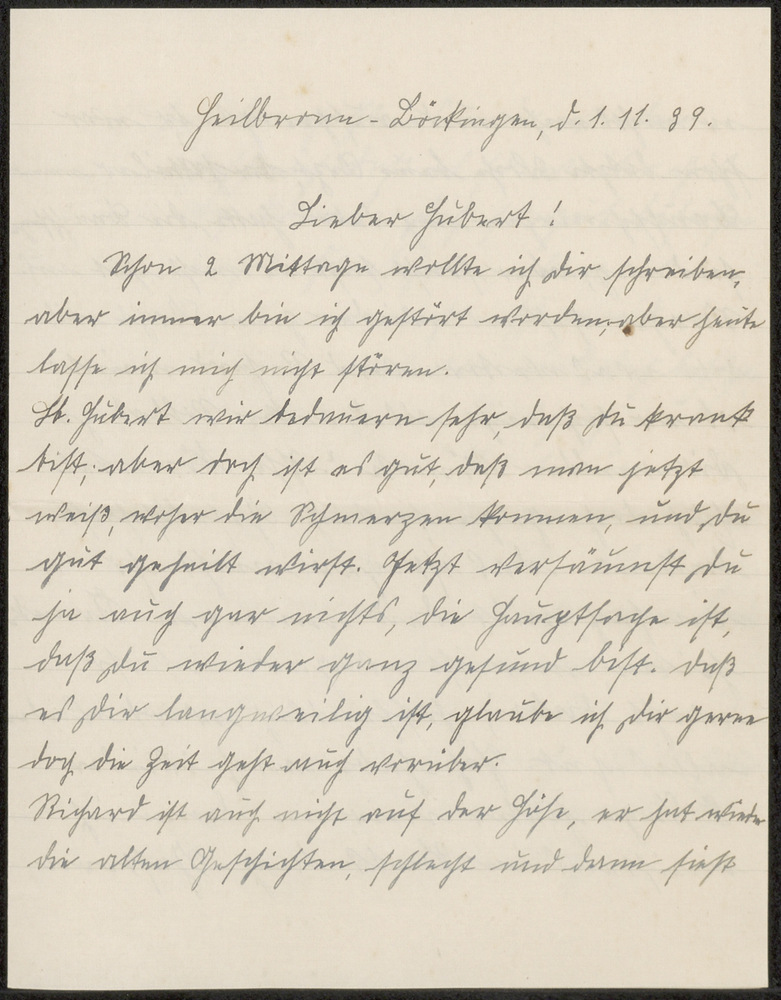 Heilbronn-Böckingen, d. 1. 11. 39.
Lieber Hubert!
Schon 2 Mittage wollte ich Dir schreiben,
aber immer bin ich gestört worden, aber heute
lasse ich mich nicht stören.
Lb. Hubert wir bedauern sehr, daß Du krank
bist, aber doch ist es gut, daß man jetzt
weiß, woher die Schmerzen kommen, und Du
gut geheilt wirst. Jetzt versäumst Du
ja auch gar nichts, die Hauptsache ist,
daß Du wieder ganz gesund bist. Daß
es Dir langweilig ist, glaube ich Dir gerne
doch die Zeit geht auch vorüber.
Richard ist auch nicht auf der Höhe, er hat wieder
die alten Geschichten, schlecht und dann sieht